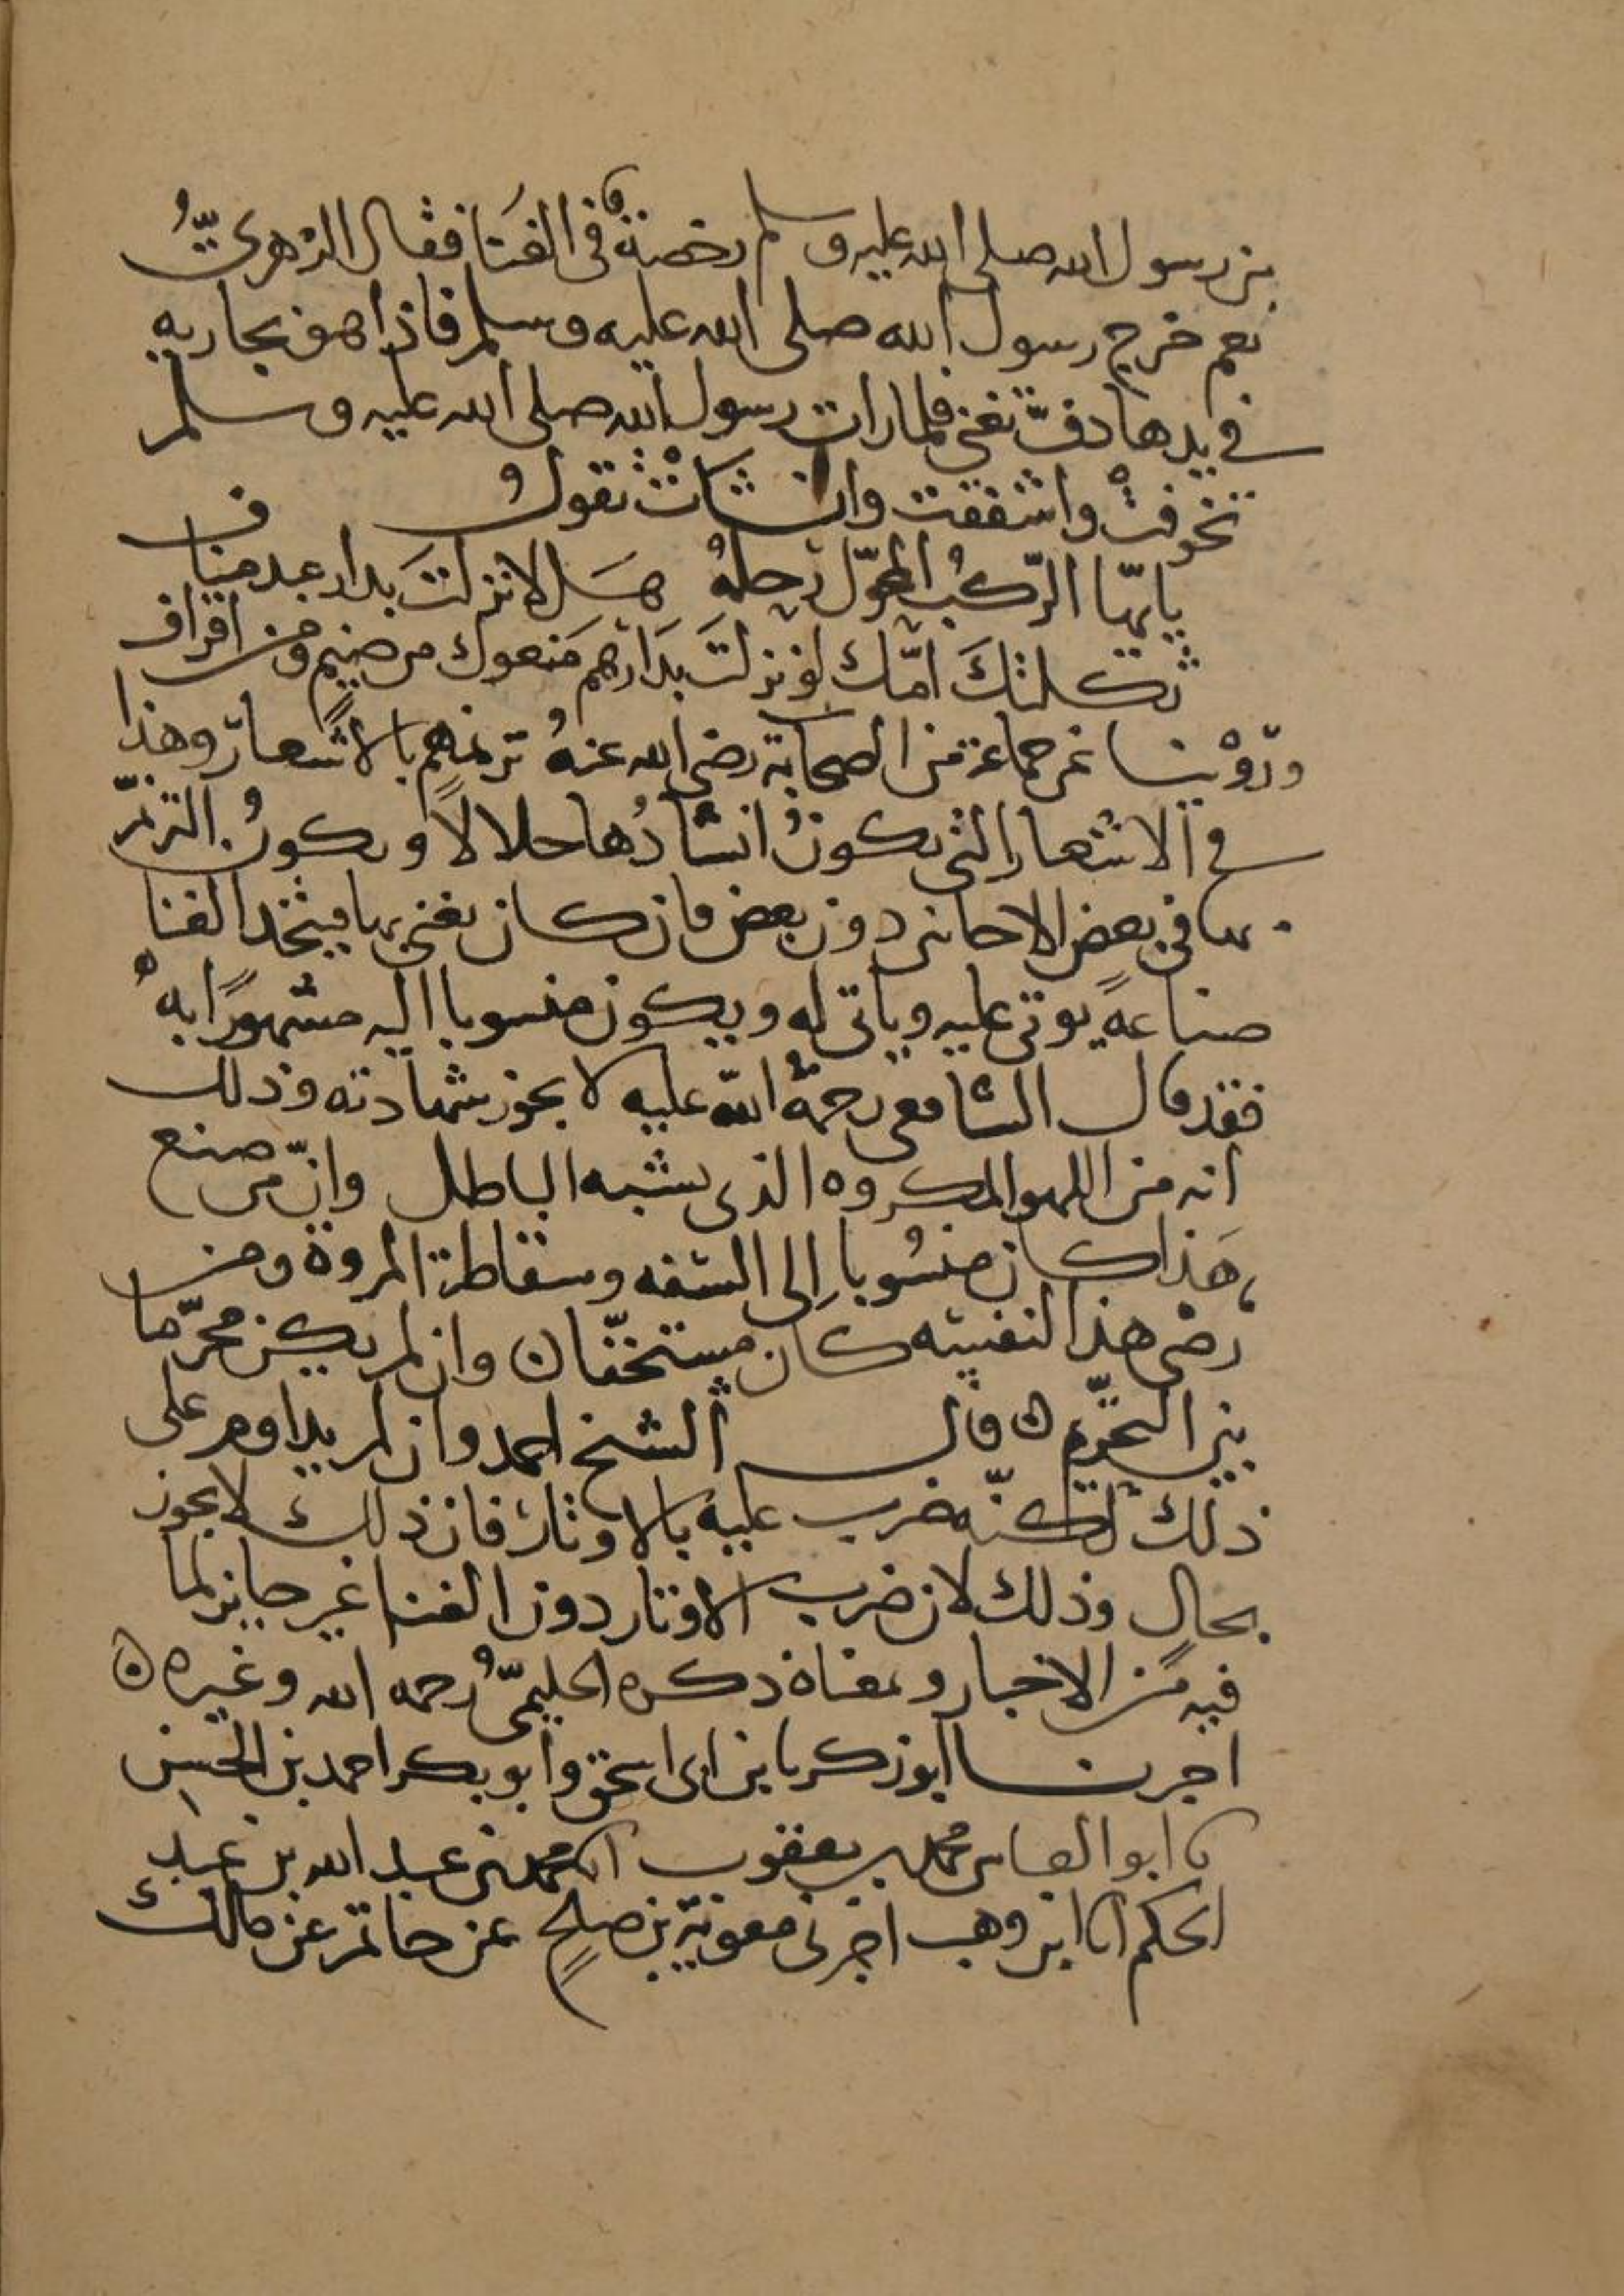 من رسول الله صلى الله عليه وسلم رخصة في الغنا فقال الزهريُّ
نعم خرج رسول الله صلى الله عليه وسلم فاذا هو بجاريه
في يدها دفّ تغني فلما رات رسول الله صلى الله عليه وسلم
تخوفتْ واشفقت وانشاتْ تقولُ
يايها الرّكبُ المحوّل رحلهُ هَلا نزلتَ بدار عبد مناف
ثكلتكَ امّك لوْ نزلتَ بدَارهم مَنعوك من ضيم ومن اقراف
وروْينا عن جماعة من الصحابة رضي الله عنهُ ترنمهم بالاشعار وهذا
في الاشعار التي يكونُ انشادُها حلالاً ويكونُ الترنّم
بها في بعض الاحانين دون بعض فان كان يغني بها فيتخذ الغنا
صناعةً يوتى عليه وياتي له ويكون منسوبا اليه مشهورًا بهْ
فقد قال الشافعي رحمةُ الله عليه لا يجوز شهادته وذلك
انه من اللهو المكروه الذي يشبه الباطل وانّ من صنع
هَذا كان منسُوبا إلى السَّفه وسقاطة المروة ومن
رضي هذا لنفسه كان مستخفّا ن وان لم يكن محرّما
بين التحرّيم ن قال الشيخ احمد وان لم يداوم على
ذلك لكنّه ضرب عليه بالاوتار فان ذلك لا يجوز
بحال وذلك لان ضرب الاوتار دون الغنا غير جايز لما
فيه من الاخبار ومعناه ذكره الحليميُّ رحمه الله وغيره ن
اخبرنا ابو زكريا بن ابي اسحق وابو بكر احمد بن الحسن
نا ابو العباس محمد بن يعقوب انا محمد بن عبد الله بن عبد
الحكم انا ابن وهب اخبرني معوية بن صلح عن حاتم عن مالك